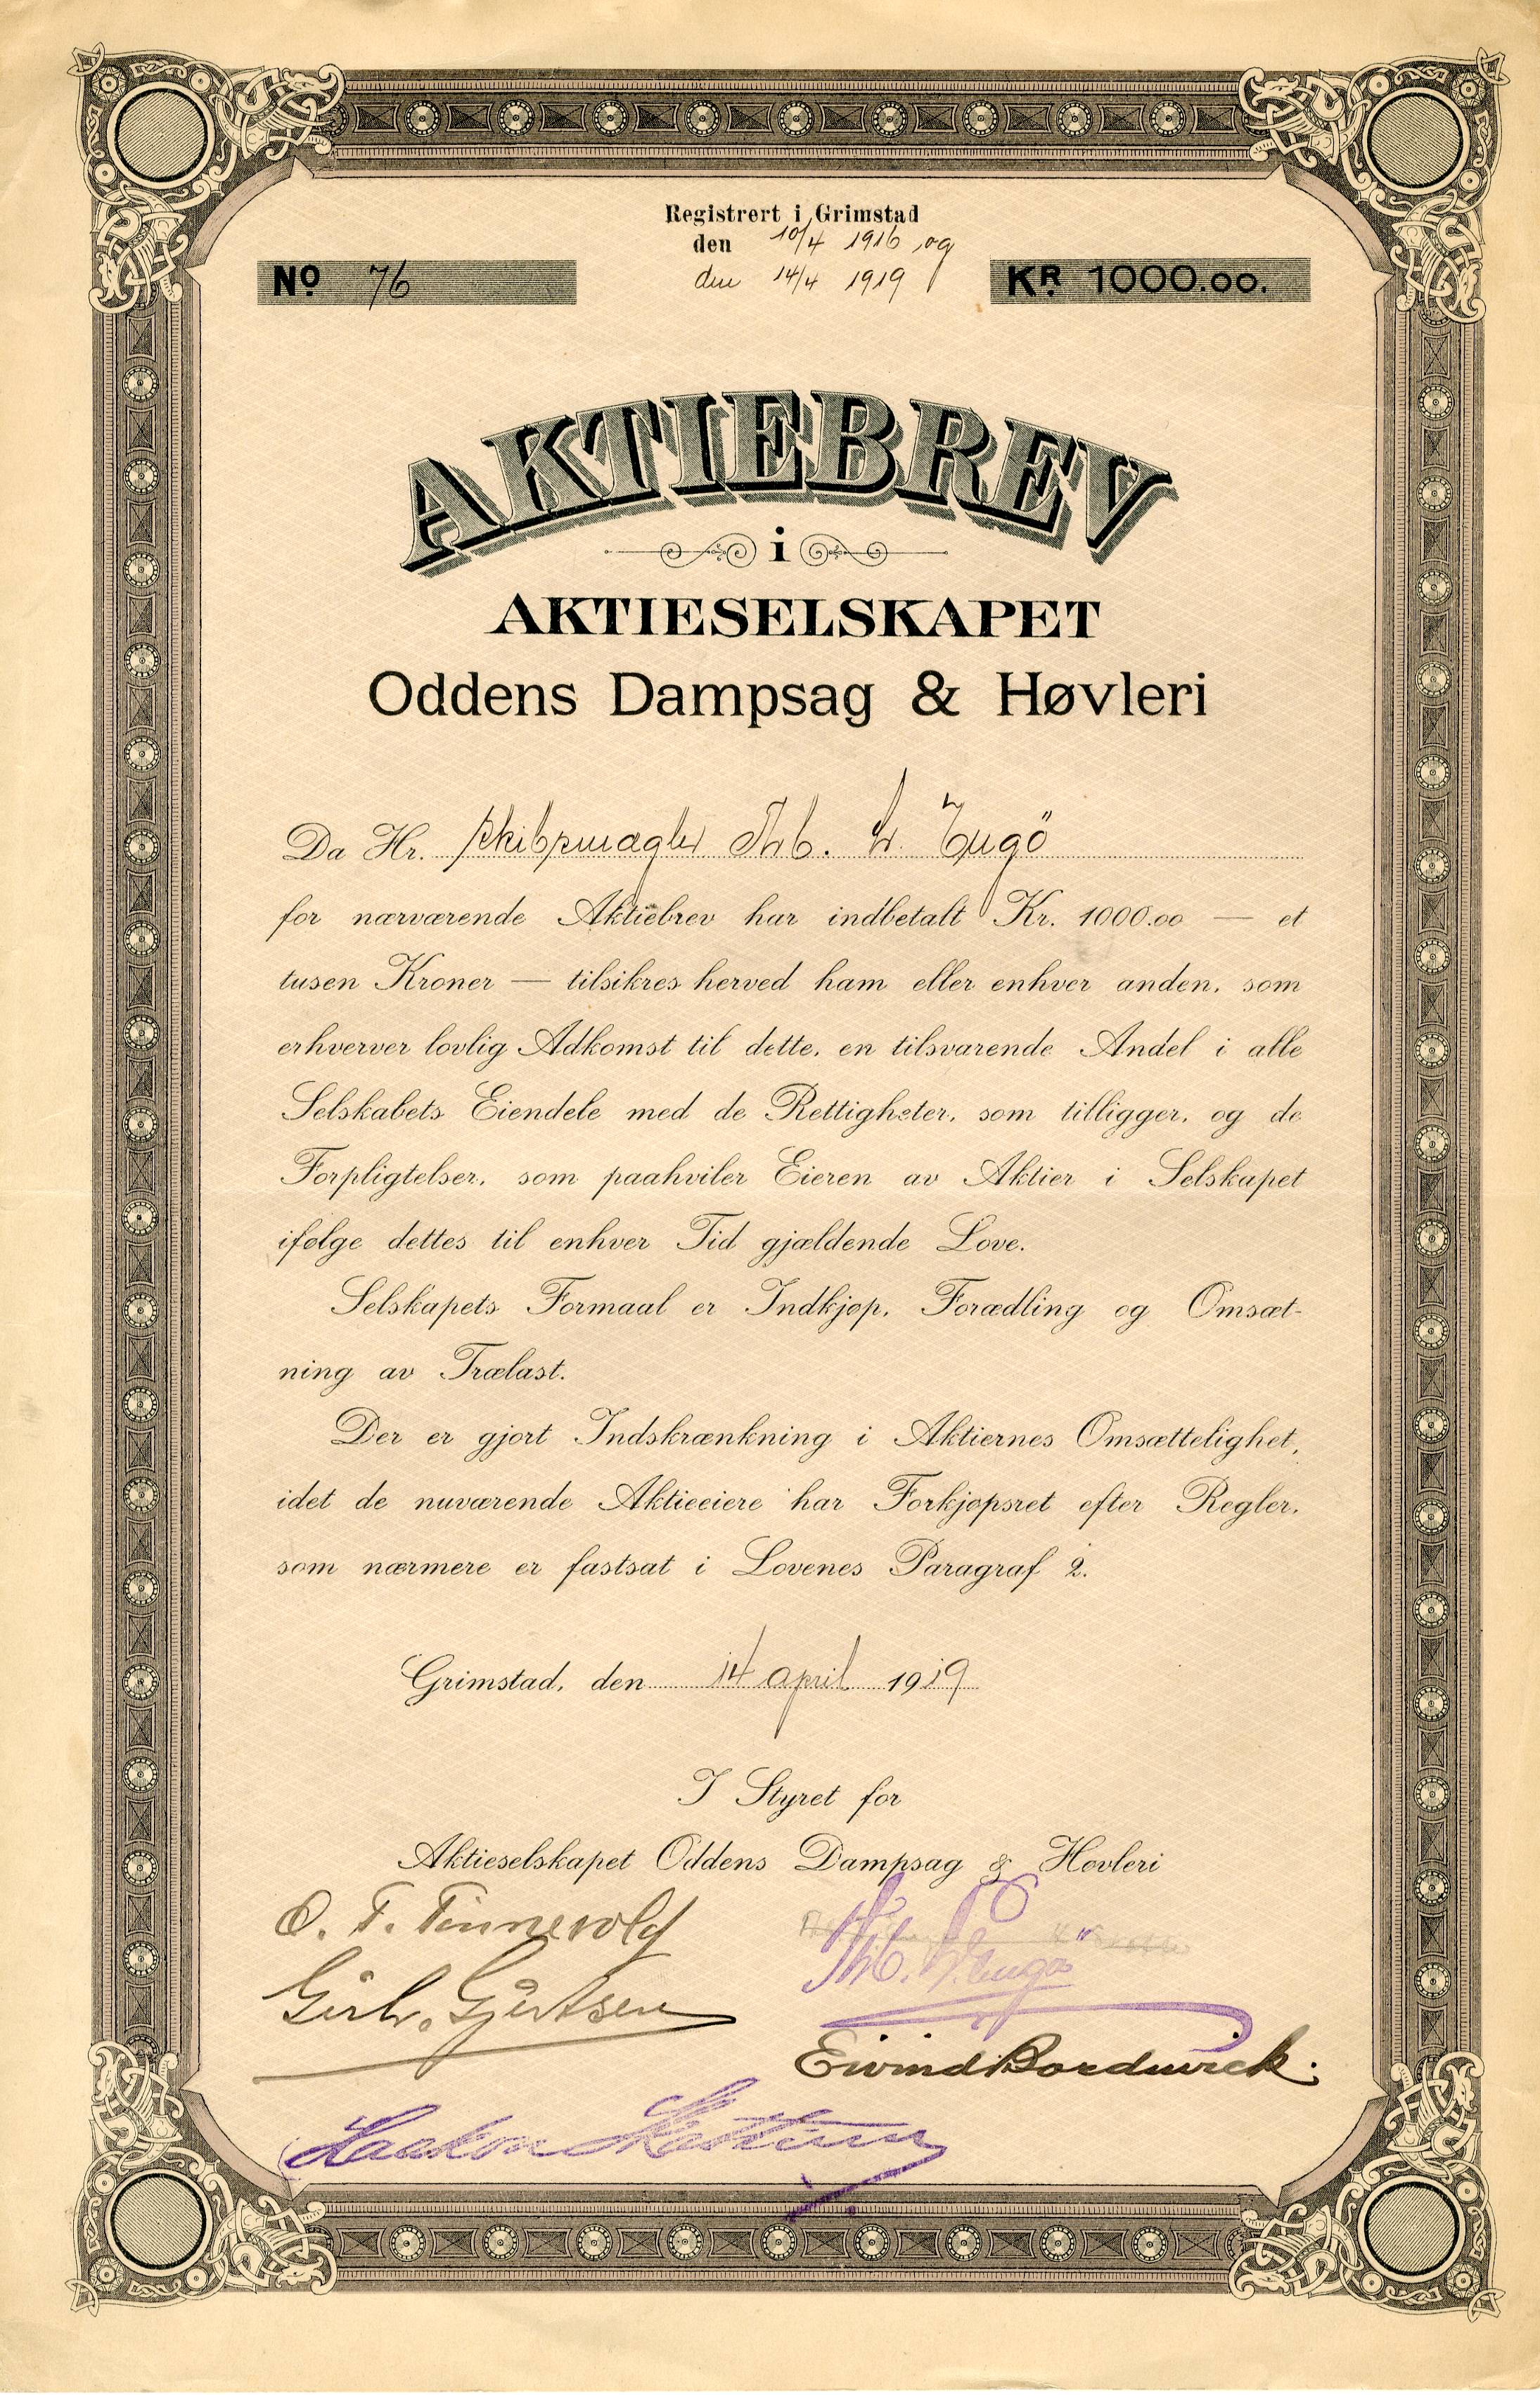 Registrert i Grimstad
den 10/4 1916 og
den 14/4 1919
No. 76
KR. 1000.00.
AKTIEBREV
i
AKTIESELSKAPET
Oddens Dampsag & Høvleri
Da Hr. skibsmægler Thb.
for nærværende Aktiebrev har indbetalt Kr. 1000.00 — et
tusen Kroner — tilsikres herved ham eller enhver anden, som
erhverver lovlig Adkomst til dette, en tilsvarende Andel i alle
Selskabets Eiendele med de Rettigheter, som tilligger, og de
Forpligtelser, som paahviler Eieren av Aktier i Selskapet
ifølge dettes til enhver Tid gjældende Love.
Selskapets Formaal er Indkjøp, Forædling og Omsæt-
ning av Trælast.
Der er gjort Indskrænkning i Aktiernes Omsættelighet,
idet de nuværende Aktieeiere har Forkjøpsret efter Regler,
som nærmere er fastsat i Lovenes Paragraf 2.
Grimstad, den 14 april 1919
I Styret for
Aktieselskapet Oddens Dampsag & Høvleri
O. T. Tønnevold
Thb.
Gjertsen
Eivind Bordewick.
Haakon